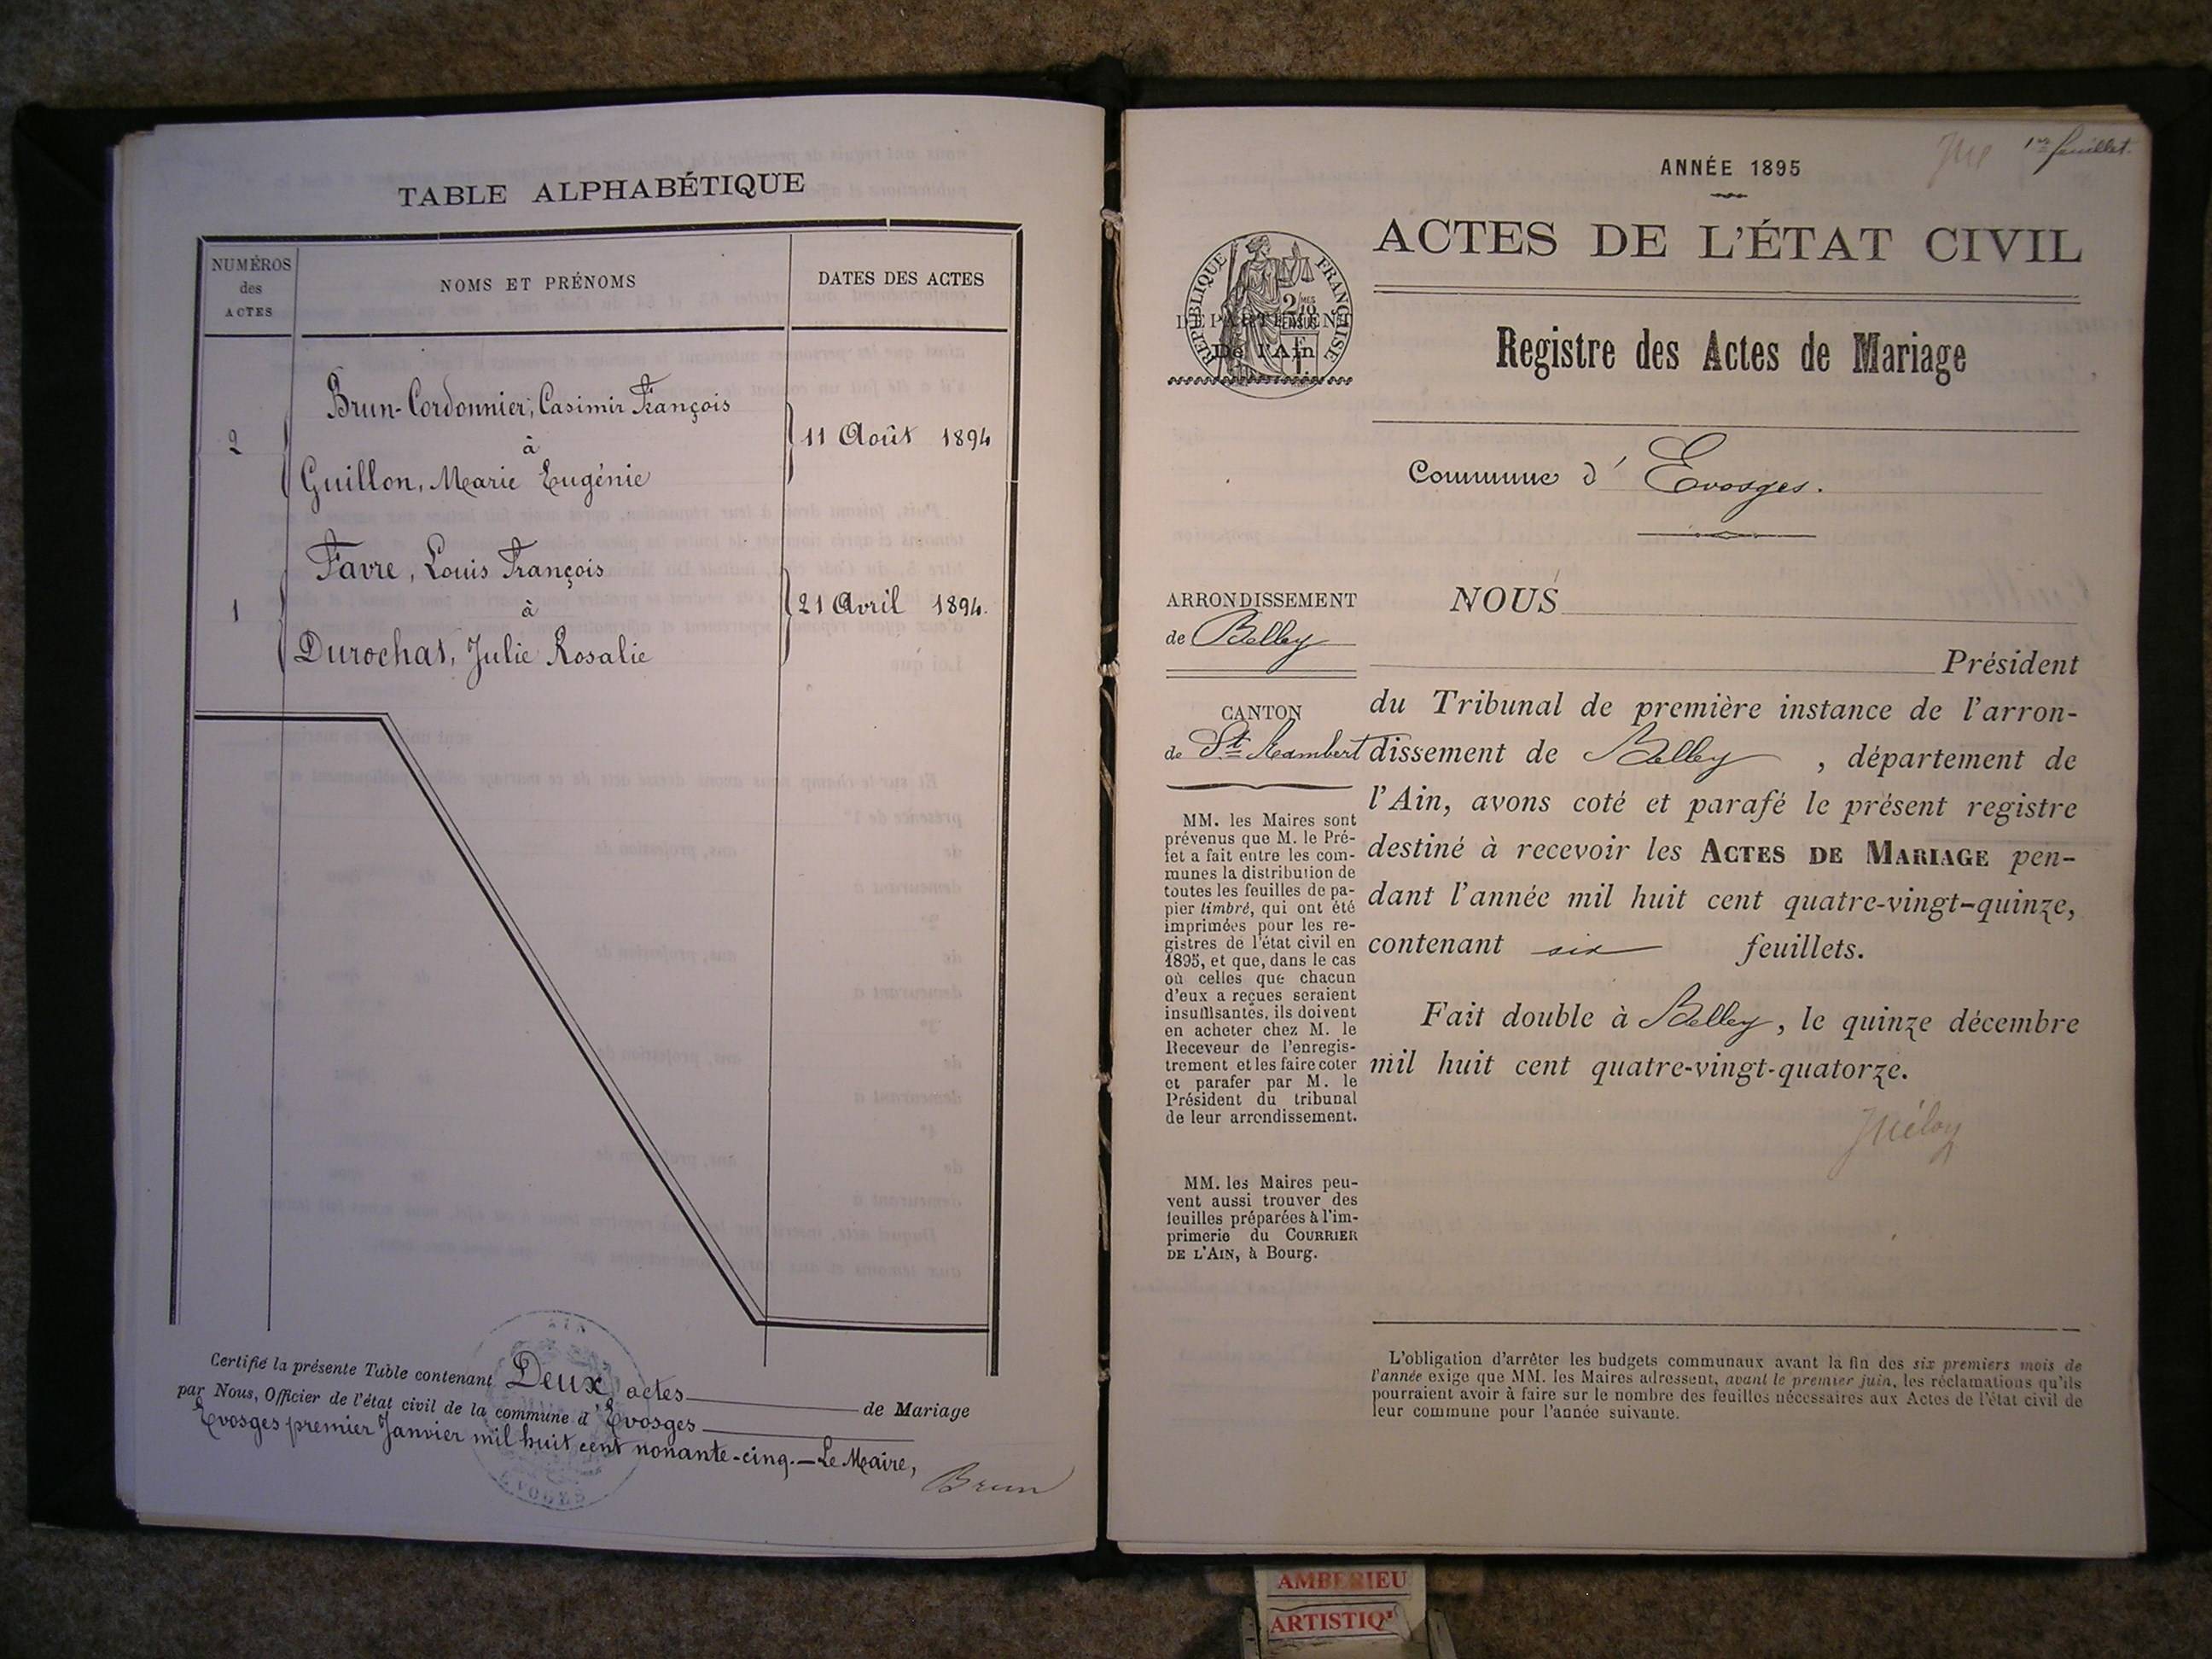 TABLE ALPHABÉTIQUE
NUMÉROS
des
ACTES
NOMS ET PRÉNOMS
DATES DES ACTES
Brun-Cordonnier, Casimir François
à
2
11 Août 1894
Guillon, Marie Eugénie
Favre, Louis François
à
1
21 Avril 1894.
Durochat, Julie Rosalie
Certifié la présente Table contenant Deux actes de Mariage
par Nous, Officier de l'état civil de la commune d'Evosges
Evosges premier Janvier mil huit cent nonante-cinq.—Le Maire,
Brun
AIN
1er feuillet.
ANNÉE 1895
ACTES DE L'ÉTAT CIVIL
RÉPUBLIQUE FRANÇAISE
DÉPARTEMENT
De l'Ain
Registre des Actes de Mariage
Commune d'Evosges.
ARRONDISSEMENT
de Belley
CANTON
de St Rambert
MM. les Maires sont
prévenus que M. le Pré-
fet a fait entre les com-
munes la distribution de
toutes les feuilles de pa-
pier timbré, qui ont été
imprimées pour les re-
gistres de l'état civil en
1895, et que, dans le cas
où celles que chacun
d'eux a reçues seraient
insuffisantes, ils doivent
en acheter chez M. le
Receveur de l'enregis-
trement et les faire coter
et parafer par M. le
Président du tribunal
de leur arrondissement.
MM. les Maires peu-
vent aussi trouver des
feuilles préparées à l'im-
primerie du COURRIER
DE L'AIN, à Bourg.
NOUS
Président
du Tribunal de première instance de l'arron-
dissement de Belley, département de
l'Ain, avons coté et parafé le présent registre
destiné à recevoir les ACTES DE MARIAGE pen-
dant l'année mil huit cent quatre-vingt-quinze,
contenant six feuillets.
Fait double à Belley, le quinze décembre
mil huit cent quatre-vingt-quatorze.
L'obligation d'arrêter les budgets communaux avant la fin des six premiers mois de
l'année exige que MM. les Maires adressent, avant le premier juin, les réclamations qu'ils
pourraient avoir à faire sur le nombre des feuilles nécessaires aux Actes de l'état civil de
leur commune pour l'année suivante.
AMBERIEU
ARTISTIQ'